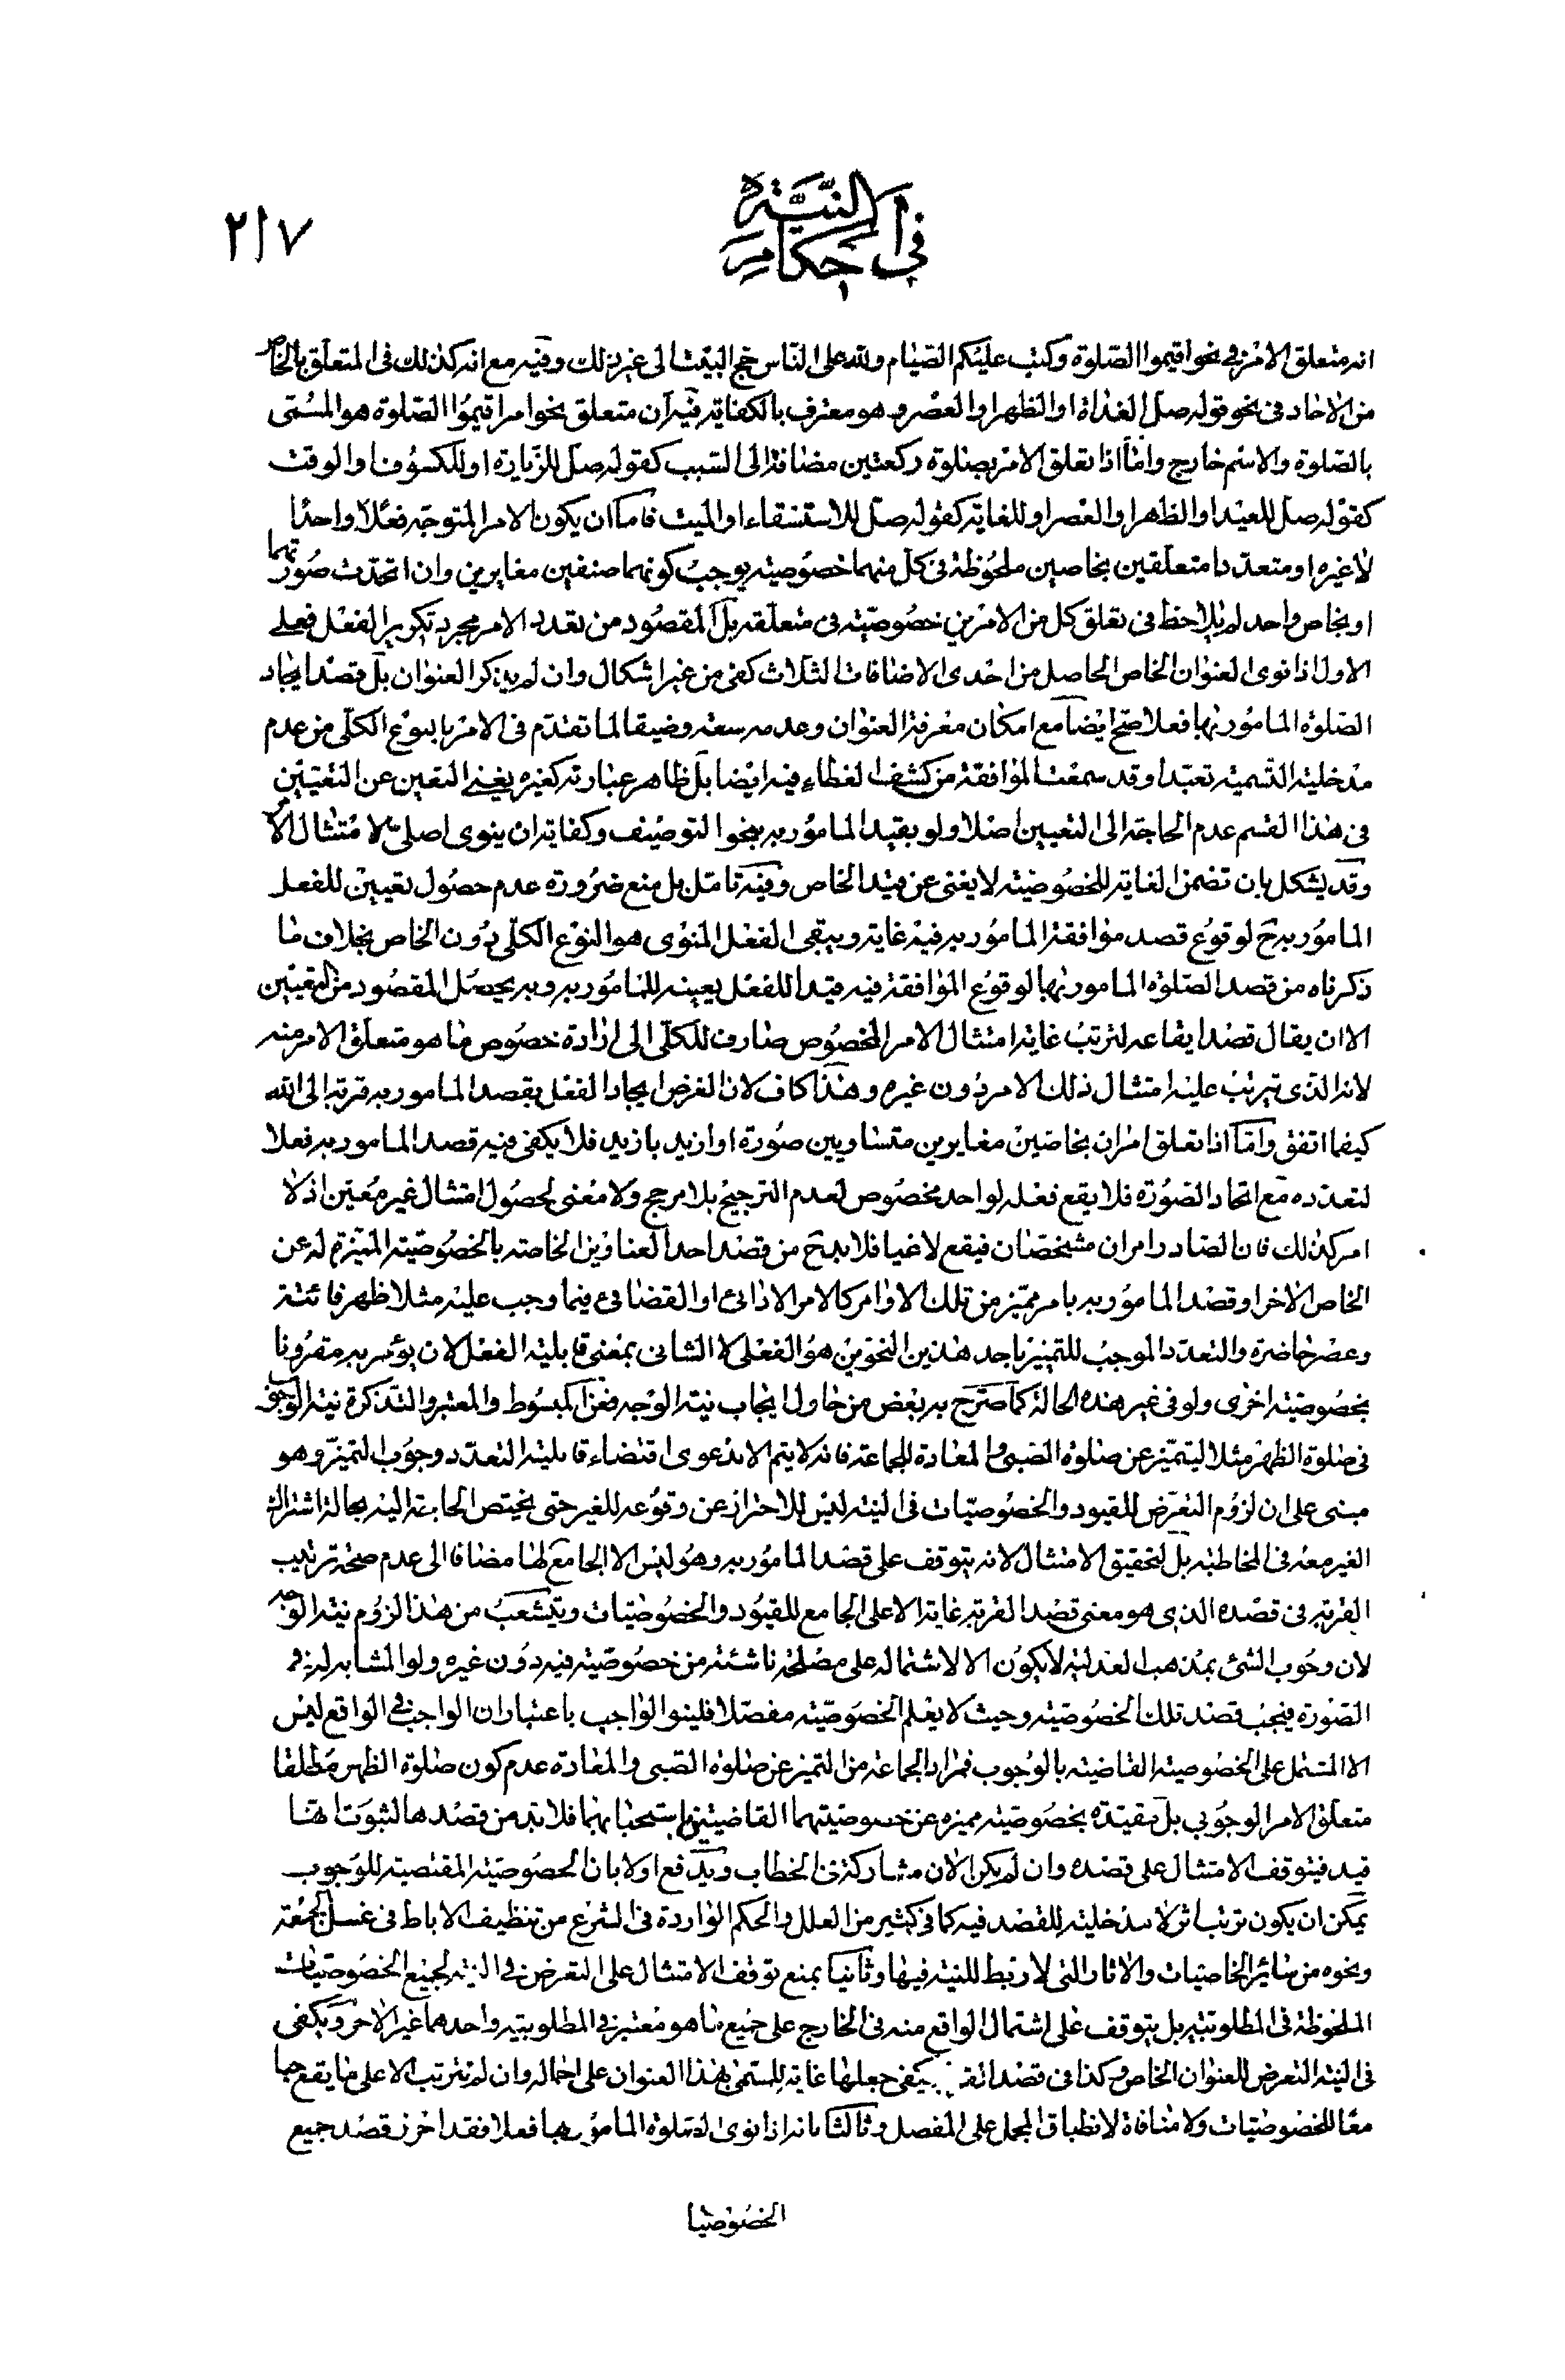 في احكام النية
٢١٧
انه متعلق الامر في نحو اقيموا الصلوة وكتب عليكم الصيام ولله على الناس حج البيت الى غير ذلك وفيه مع انه كذلك في المتعلق بالخاص
من الاحاد في نحو قوله صل الغداة او الظهر او العصر وهو معترف بالكفاية فيه ان متعلق نحو امر اقيموا الصلوة هو المسمى
بالصلوة والاسم خارج واما اذا تعلق الامر بصلوة ركعتين مضافة الى السبب كقوله صل للزيارة او للكسوف او الوقت
كقوله صل للعيد او الظهر او العصر او للغاية كقوله صل للاستسقاء او الميت فاما ان يكون الامر المتوجه فعلا واحدا
لا غيره او متعددا متعلقين بخاصين ملحوظة في كل منهما خصوصية يوجب كونهما صنفين مغايرين وان اتحدت صورتهما
او بخاص واحد لم يلاحظ في تعلق كل من الامرين خصوصية في متعلقه بل المقصود من تعدد الامر مجرد تكرير الفعل فعلى
الاول اذا نوى العنوان الخاص الحاصل من احدى الاضافات الثلاث كفى من غير اشكال وان لم يذكر العنوان بل قصد ايجاد
الصلوة المامور بها فعلا صح ايضا مع امكان معرفة العنوان وعدمه سعة وضيقا لما تقدم في الامر بالنوع الكلي من عدم
مدخلية التسمية تعبدا وقد سمعت الموافقة من كشف الغطاء فيه ايضا بل ظاهر عبارته كغيره يغني التعين عن التعيين
في هذا القسم عدم الحاجة الى التعيين اصلا ولو بقيد المامور به بنحو التوصيف وكفاية ان ينوى اصلي لامتثال الامر
وقد يشكل بان تضمن الغاية للخصوصية لا يغنى عن قيد الخاص وفيه تامل بل منع ضرورة عدم حصول تعيين للفعل
المامور به ح لوقوع قصد موافقة المامور به فيه غاية ويبقى الفعل المنوى هو النوع الكلي دون الخاص بخلاف ما
ذكرناه من قصد الصلوة المامور بها لوقوع الموافقة فيه قيدا للفعل يعينه للمامور به وبه يحصل المقصود من التعيين
الا ان يقال قصد ايقاعه لترتب غاية امتثال الامر المخصوص صارف للكلي الى ارادة خصوص ما هو متعلق الامر منه
لانه الذى يترتب عليه امتثال ذلك الامر دون غيره وهذا كاف لان الغرض ايجاد الفعل بقصد المامور به قربة الى الله
كيفما اتفق واما اذا تعلق امران بخاصين مغايرين متساويين صورة او ازيد بازيد فلا يكفى فيه قصد المامور به فعلا
لتعدده مع اتحاد الصورة فلا يقع فعله لواحد مخصوص لعدم الترجيح بلا مرجح ولا معنى لحصول امتثال غير معين اذ لا
امر كذلك فان الصادر امران مشخصان فيقع لاغيا فلا بد ح من قصد احد العناوين الخاصة بالخصوصية المميزة له عن
الخاص الاخر او قصد المامور به بامر مميز من تلك الاوامر كالامر الادائى او القضائى فيما وجب عليه مثلا ظهر فائتة
وعصر حاضرة والتعدد الموجب للتمييز باحد هذين النحوين هو الفعلى لا الشانى بمعنى قابلية الفعل لان يؤمر به مقرونا
بخصوصية اخرى ولو في غير هذه الحالة كما صرح به بعض من حاول ايجاب نية الوجه فعن المبسوط والمعتبر والتذكرة نية الوجوب
في صلوة الظهر مثلا ليتميز عن صلوة الصبى والمعادة للجماعة فانه لا يتم الا بدعوى اقتضاء قابلية التعدد وجوب التميز وهو
مبنى على ان لزوم التعرض للقيود والخصوصيات في النية ليس للاحتراز عن وقوعه للغير حتى يختص الحاجة اليه بحالة اشتراك
الغير معه في المخاطبة بل لتحقيق الامتثال لانه يتوقف على قصد المامور به وهو ليس الا الجامع لها مضافا الى عدم صحة ترتيب
القربة في قصده الذى هو معنى قصد القربة غاية الا على الجامع للقيود والخصوصيات ويتشعب من هذا لزوم نية الوجه
لان وجوب الشئ بمذهب العدلية لا يكون الا لاشتماله على مصلحة ناشئة من خصوصية فيه دون غيره ولو المشابه له في
الصورة فيجب قصد تلك الخصوصية وحيث لا يعلم الخصوصية مفصلا فلينو الواجب باعتبار ان الواجب في الواقع ليس
الا المشتمل على الخصوصية القاضية بالوجوب فمراد الجماعة من التميز عن صلوة الصبى والمعادة عدم كون صلوة الظهر مطلقا
متعلق الامر الوجوبي بل مقيدة بخصوصية مميزة عن خصوصيتهما القاضيتين باستحبابهما فلا بد من قصدها لثبوت انها
قيد فيتوقف الامتثال على قصده وان لم يكن الان مشاركة في الخطاب ويدفع اولا بان الخصوصية المقتضية للوجوب
يمكن ان يكون ترتب اثر لا مدخلية للقصد فيه كما في كثير من العلل والحكم الواردة في الشرع من تنظيف الاباط في غسل الجمعة
ونحوه من سائر الخاصيات والاثار التى لا ربط للنية فيها وثانيا بمنع توقف الامتثال على التعرض في النية لجميع الخصوصيات
الملحوظة في المطلوبية بل يتوقف على اشتمال الواقع منه في الخارج على جميع ما هو معتبر في المطلوبية واحدهما غير الاخر ويكفى
في النية التعرض للعنوان الخاص وكذا في قصد يكفى جعلها غاية للمسمى بهذا العنوان على اجماله وان لم تترتب الا على ما يقع جامعا
للخصوصيات ولا منافاة لانطباق المجمل على المفصل وثالثا بانه اذا نوى الصلوة المامور بها فعلا فقد احرز قصد جميع
الخصوصيا